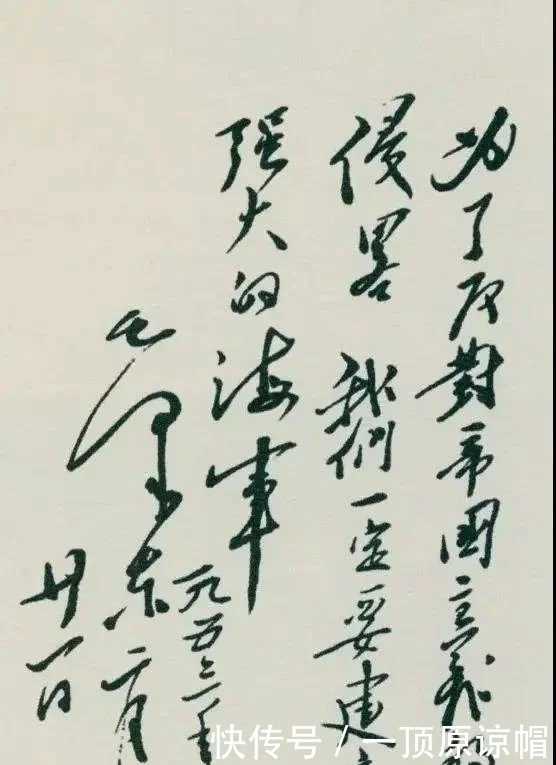 为了反對帝國主義
侵畧 我們一定要建
强大的海軍
一九五三年
毛泽东 二月
廿一日
快传号 / 一顶原谅帽